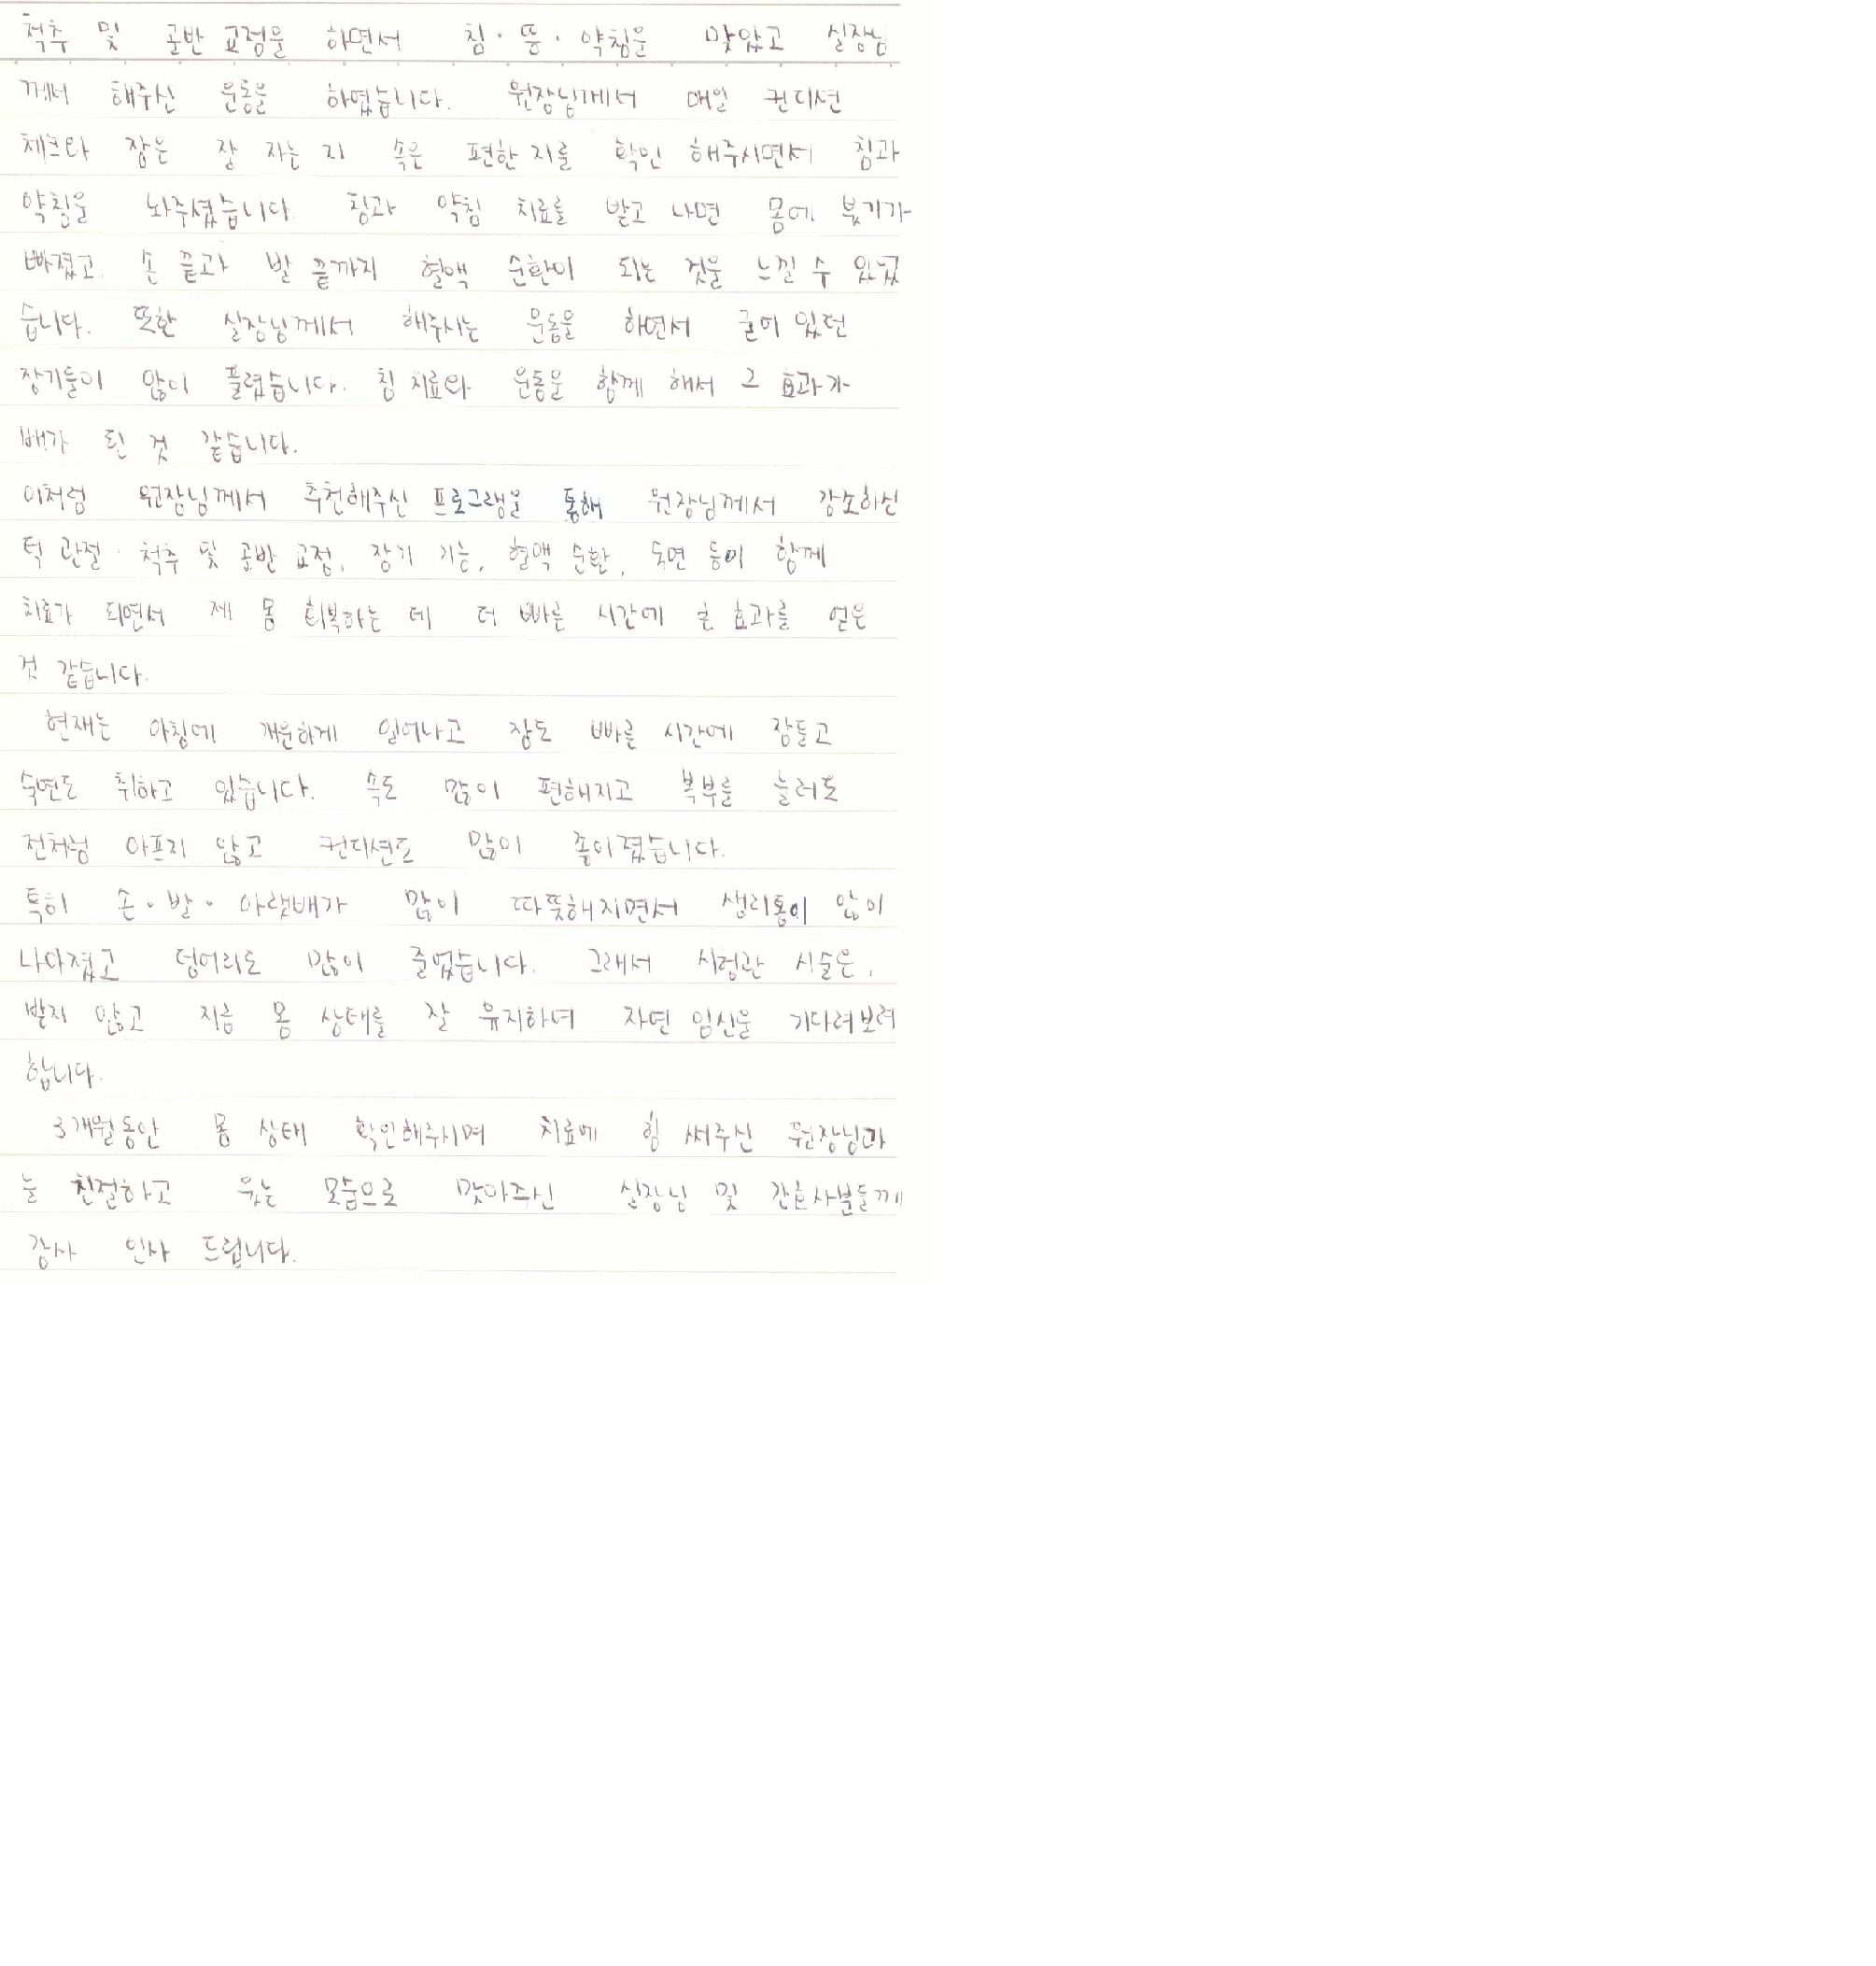 척추 및 골반 교정을 하면서 침·뜸·약침을 맞았고 실장님
께서 해주신 운동을 하였습니다. 원장님께서 매일 컨디션
체크와 잠은 잘 자는 지 속은 편한 지를 확인 해주시면서 침과
약침을 놔주셨습니다. 침과 약침 치료를 받고 나면 몸에 붓기가
빠졌고 손 끝과 발 끝까지 혈액 순환이 되는 것을 느낄 수 있었
습니다. 또한 실장님께서 해주시는 운동을 하면서 굳어 있던
장기들이 많이 풀렸습니다. 침 치료와 운동을 함께 해서 그 효과가
배가 된 것 같습니다.
이처럼 원장님께서 추천해주신 프로그램을 통해 원장님께서 강조하신
턱 관절·척추 및 골반 교정, 장기 기능, 혈액 순환, 숙면 등이 함께
치료가 되면서 제 몸 회복하는 데 더 빠른 시간에 큰 효과를 얻은
것 같습니다.
현재는 아침에 개운하게 일어나고 잠도 빠른 시간에 잠들고
숙면도 취하고 있습니다. 속도 많이 편해지고 복부를 눌러도
전처럼 아프지 않고 컨디션도 많이 좋아졌습니다.
특히 손·발·아랫배가 많이 따뜻해지면서 생리통이 많이
나아졌고 덩어리도 많이 줄었습니다. 그래서 시험관 시술은,
받지 않고 지금 몸 상태를 잘 유지하여 자연 임신을 기다려보려
합니다.
3개월동안 몸 상태 확인해주시며 치료에 힘 써주신 원장님과
늘 친절하고 웃는 모습으로 맞아주신 실장님 및 간호사분들께
감사 인사 드립니다.